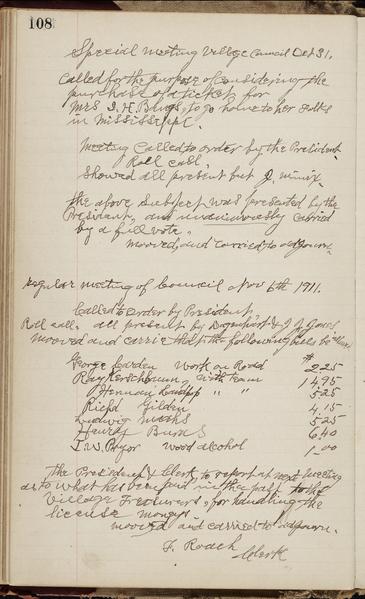 108
Special meeting Village Council Oct 31.
Called for the purpose of considering the
purchase of a ticket for
Mrs I. H. to go home to her folks
in Mississippi.
Meeting Called to order by the President
Roll call.
Showed all present but J. minix
the above subject was presented by the
President, and unanimously Carried
by a full vote.
moved and carried to adjourn.
Regular meeting of Council Nov 6th 1911.
Called to order by President,
Roll call. all present but Davenport & J. J.
moved and carried that the following bills be
George Carden Work on Road $ 2.25
Ray Kerschbaum, with team 14.95
Herman " " 5.25
Richd Gilden 4.15
Ludwig 5.25
Henry Burns 6.40
I. W. Pryor wood alcohol 1.00
The President & Clerk to report at next meeting
as to what has been paid in the past to the
Village Treasurers, for handling the
license moneys
moved and carried to adjourn.
F. Roach
Clerk